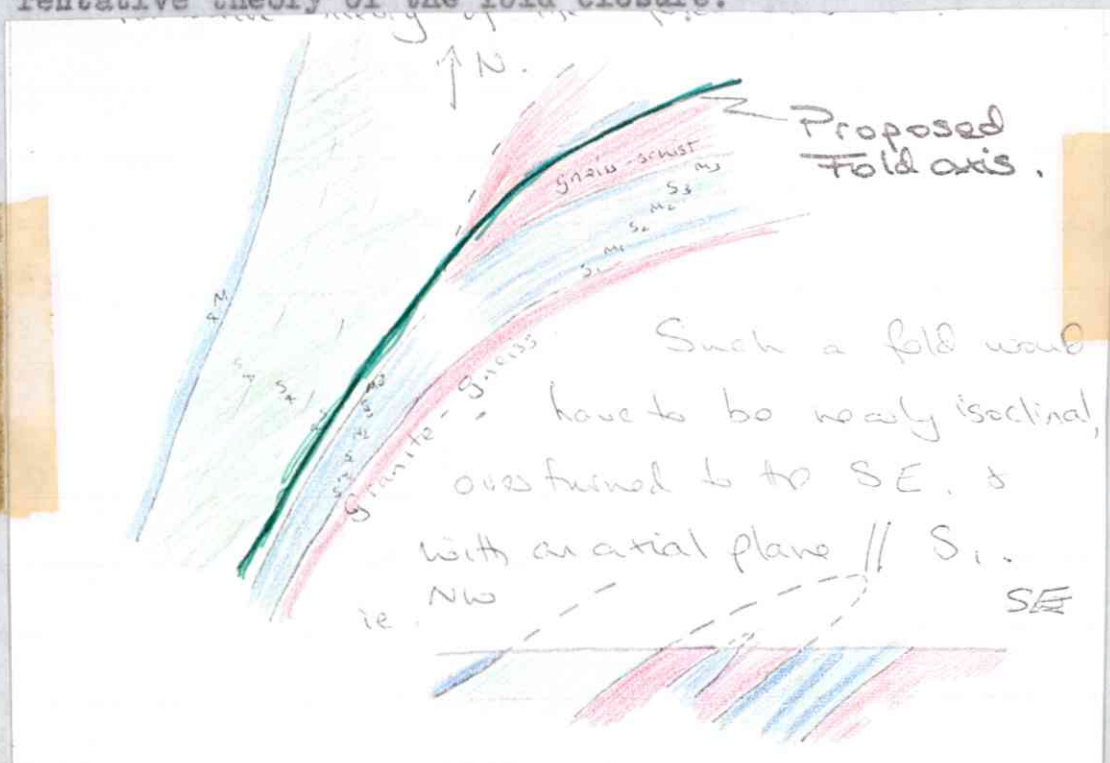 Tentative theory of the fold closure.
↑ N.
Proposed
Fold axis.
gneiss-schist
M3
S3
M2
S2
M1
S1
M
granite-gneiss.
Such a fold would
have to be nearly isoclinal,
overturned to the SE. &
with an axial plane // S1.
ie. NW
SE